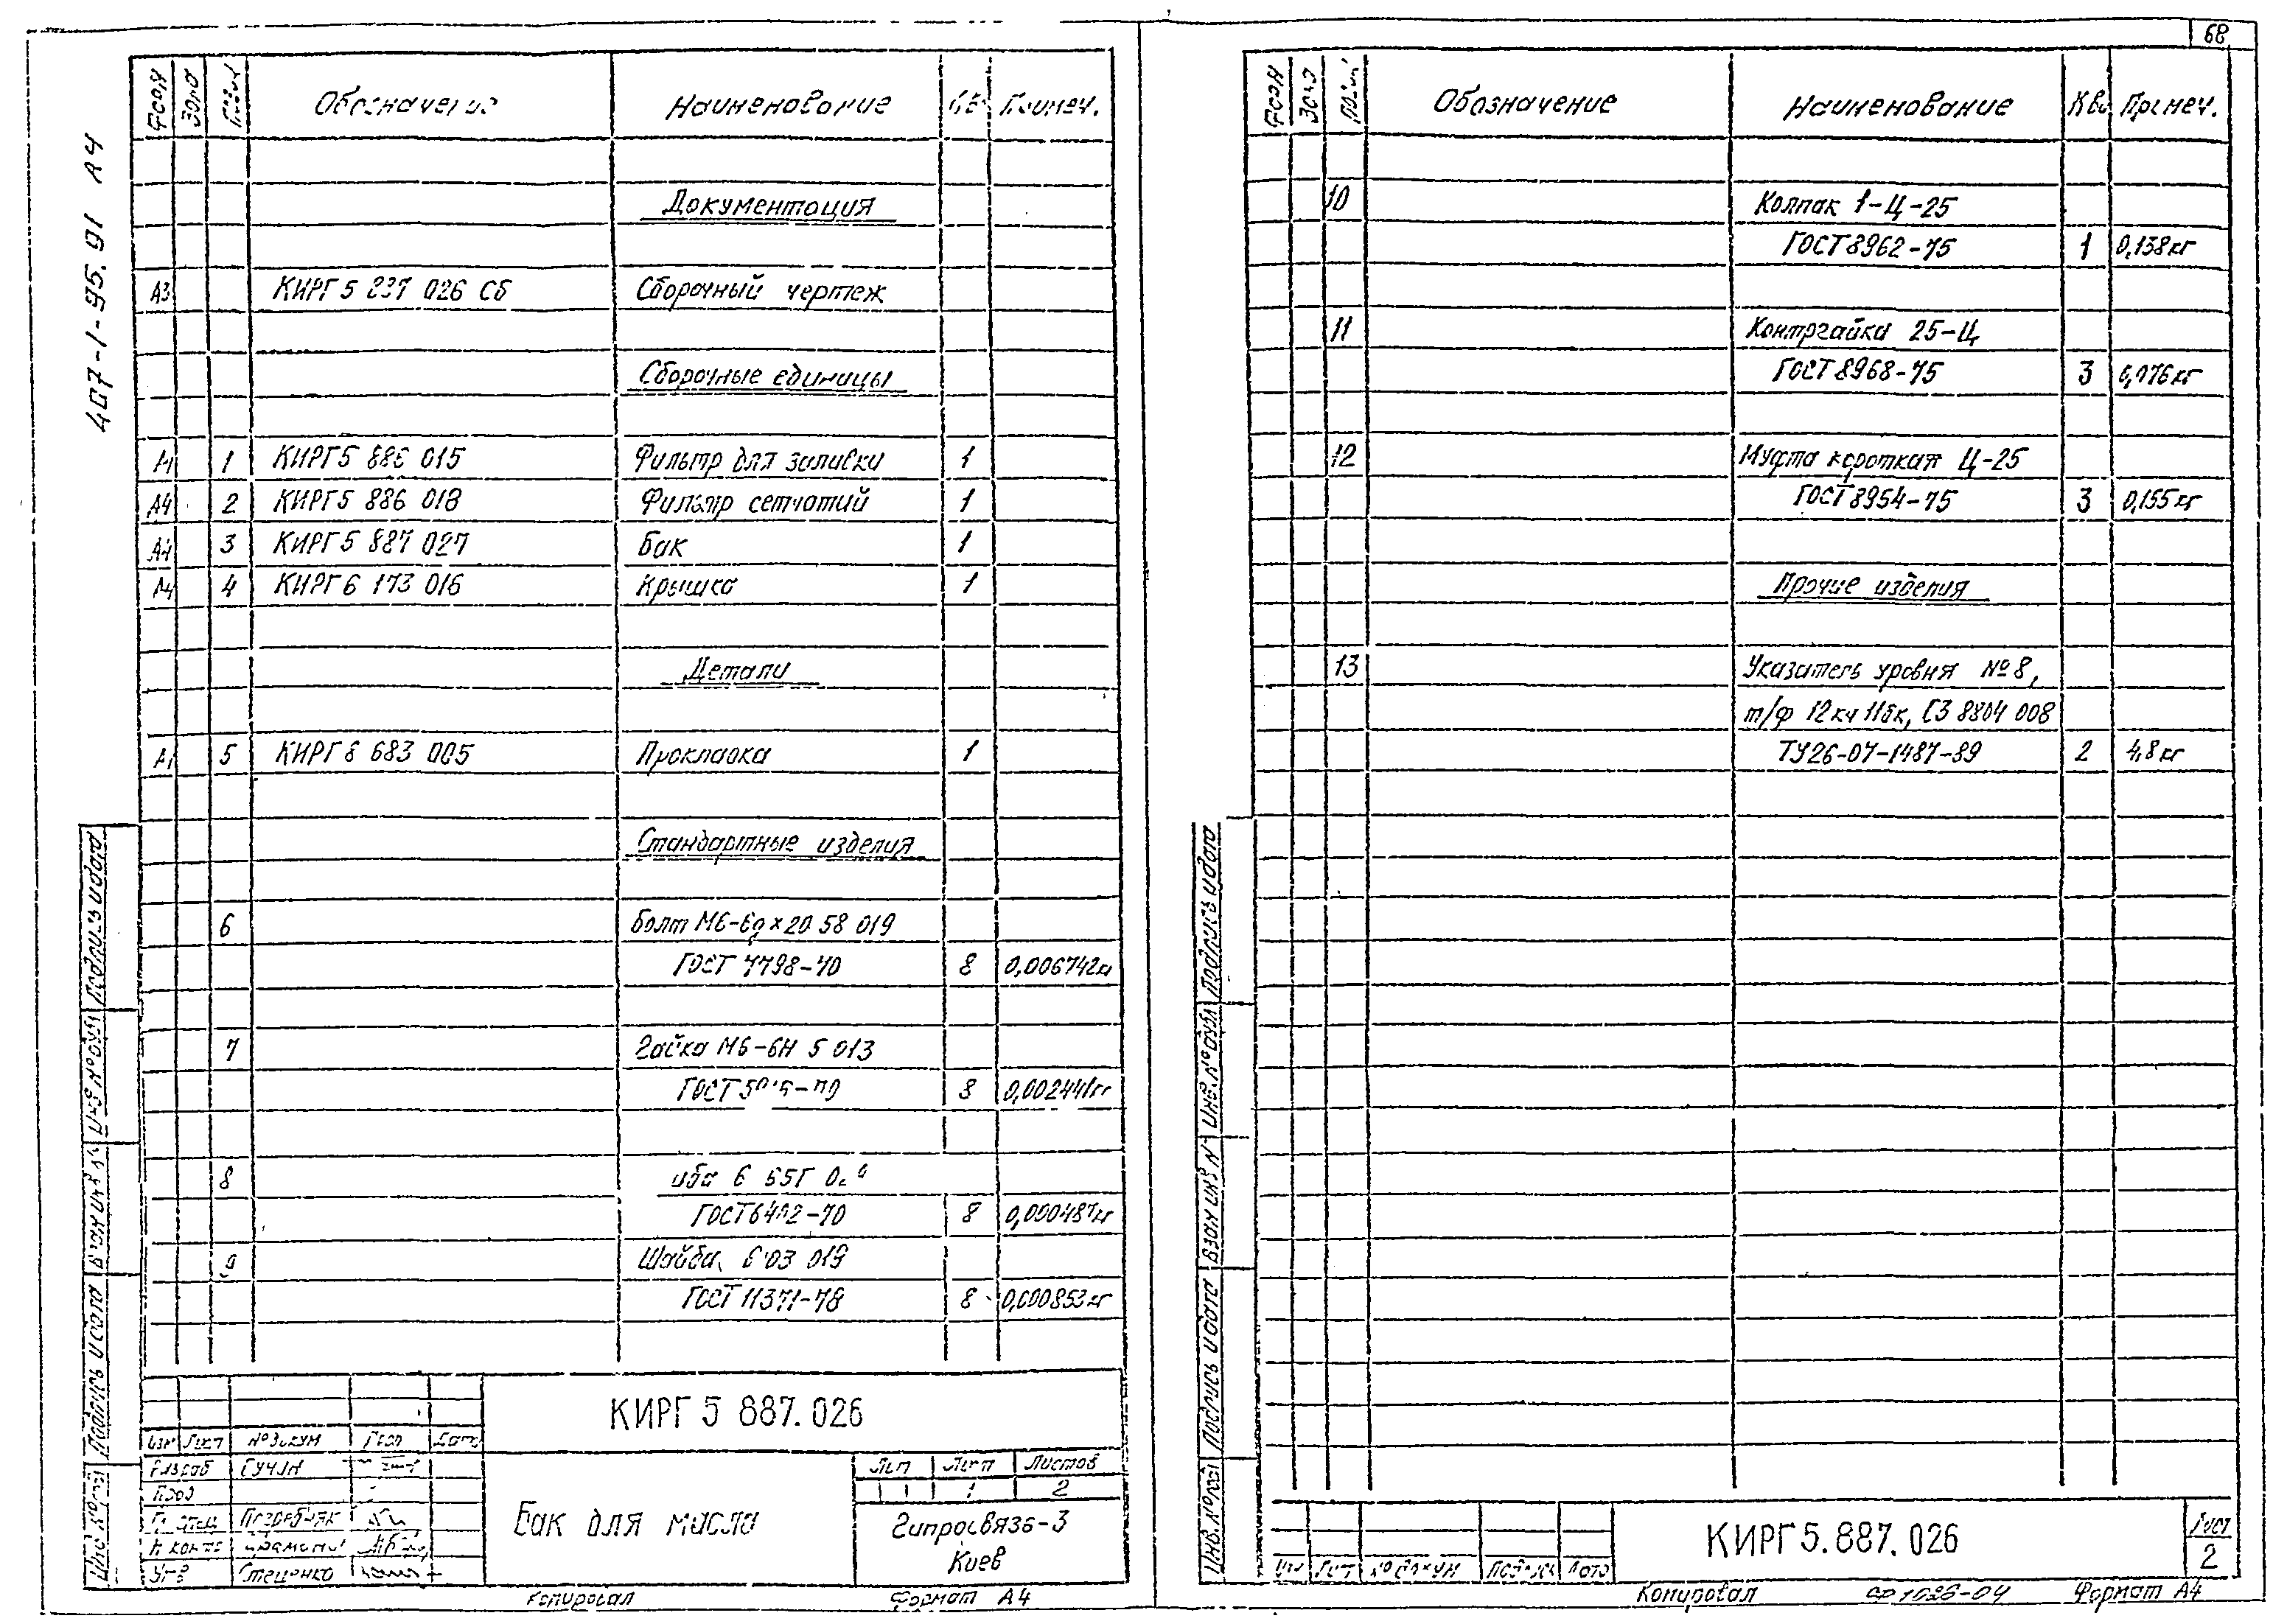 68
407-1-95.91 А4
Обозначение Наименование Примеч.
Документация
А3 КИРГ 5 237 026 СБ Сборочный чертеж
Сборочные единицы
1 КИРГ 5 886 015 Фильтр для заливки 1
А4 2 КИРГ 5 886 018 Фильтр сетчатий 1
А4 3 КИРГ 5 887 027 Бак 1
А4 4 КИРГ 6 173 016 Крышка 1
Детали
5 КИРГ 8 683 005 Прокладка 1
Стандартные изделия
6 Болт М6-6g×20 58 019
ГОСТ 7798-70 8 0,006742
7 Гайка М6-6Н 5 013
ГОСТ 8 0,002441кг
8 6 65Г
ГОСТ 6402-70 8 0,000487кг
9 Шайба 6 03 019
ГОСТ 11371-78 8 0,000853кг
КИРГ 5 887.026
Изм Лист № докум Дата
Разраб
Пров
Погребняк
Утв Стеценко
Бак для масла
Лит Лист Листов
1 2
Гипросвязь-3
Киев
Копировал Формат А4
Подпись и дата
Инв № дубл
Взам инв №
Подпись и дата
Форм Зона Позиц Обозначение Наименование Кво Примеч.
10 Колпак 1-Ц-25
ГОСТ 8962-75 1 0,138кг
11 Контргайка 25-Ц
ГОСТ 8968-75 3 0,076кг
12 Муфта короткая Ц-25
ГОСТ 8954-75 3 0,155кг
Прочие изделия
13 Указатель уровня №8,
т/ф 12кч 11бк, СЗ 8804 008
ТУ26-07-1487-89 2 4,8кг
Подпись и дата
Инв. № дубл
Взам инв №
Подпись и дата
Инв. № подл
Изм Лист № докум Подпись Дата
КИРГ 5.887.026
Лист
2
Копировал СФ 1026-04 Формат А4